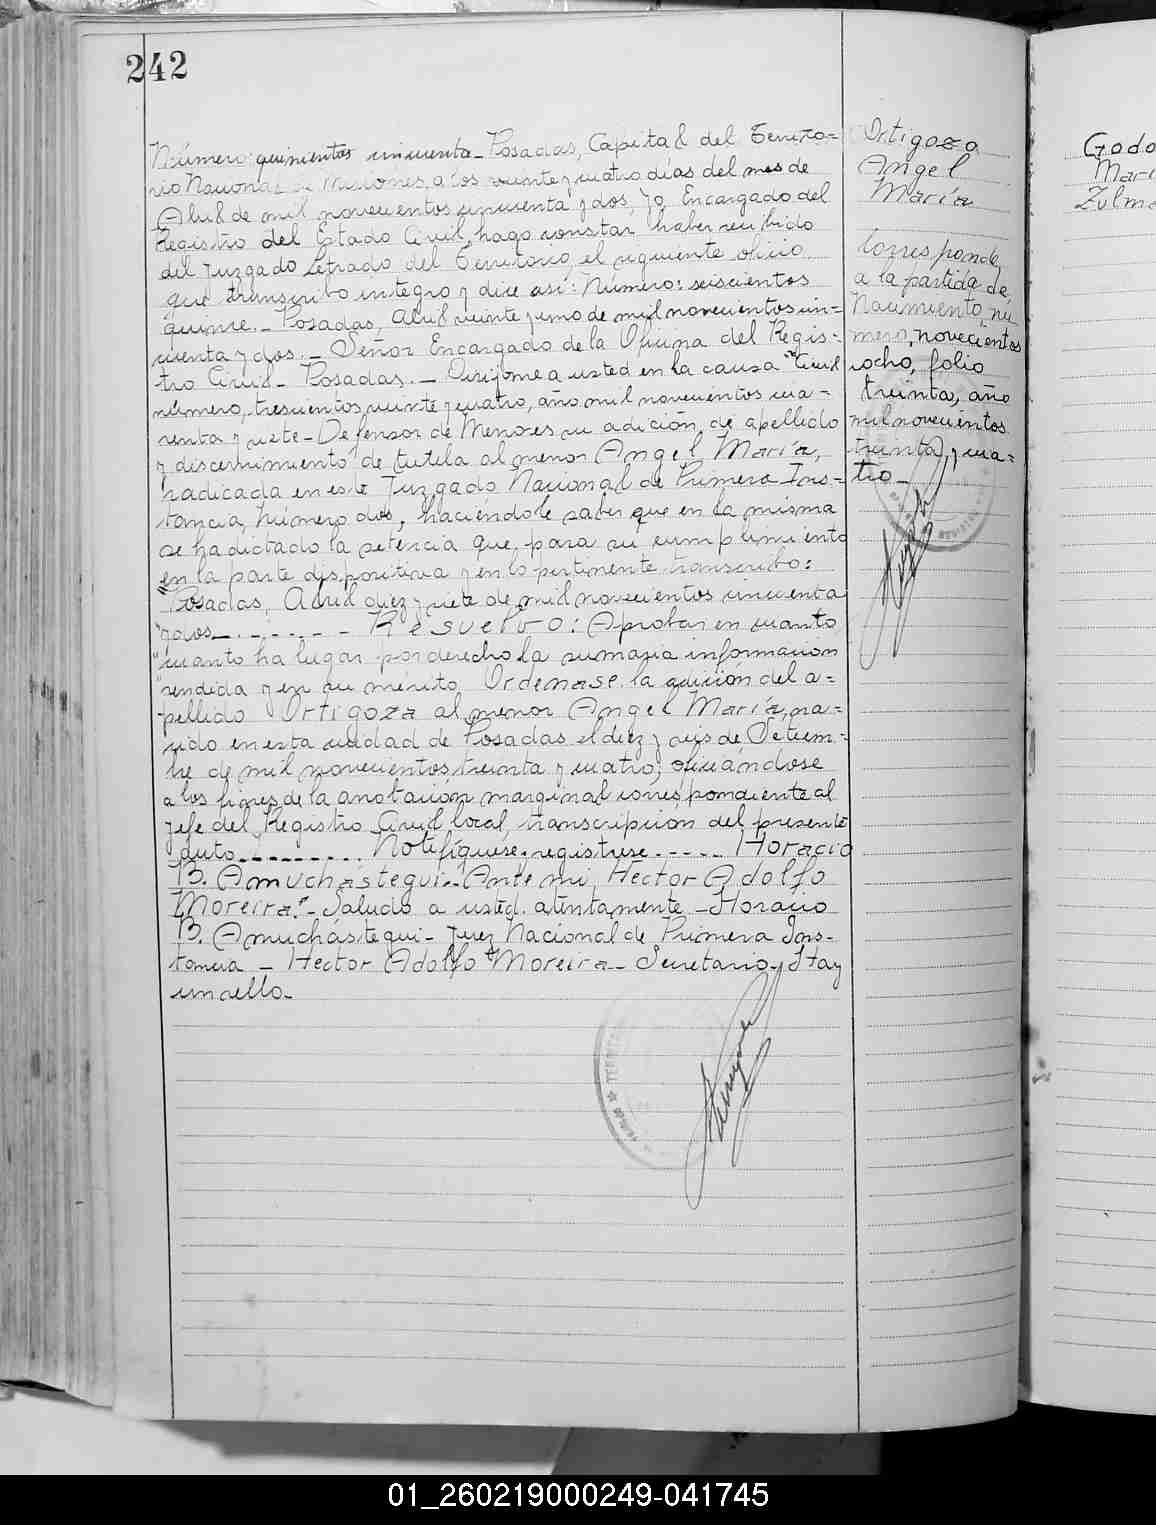 242
Número quinientos cincuenta - Posadas, Capital del Territo=
rio Nacional de Misiones, a los veinte y cuatro días del mes de
Abril de mil novecientos cincuenta y dos, yo, Encargado del
Registro del Estado Civil, hago constar haber recibido
del Juzgado Letrado del Territorio, el siguiente oficio
que transcribo integro y dice así: Número: seiscientos
quince. - Posadas, Abril veinte y uno de mil novecientos cin=
cuenta y dos. - Señor Encargado de la Oficina del Regis=
tro Civil - Posadas. - Dirijome a usted en la causa "Civil
número, trescientos veinte y cuatro, año mil novecientos cua=
renta y siete - Defensor de Menores su adición de apellido
y discernimiento de tutela al menor Angel María,
radicada en este Juzgado Nacional de Primera Ins=
tancia, Número dos, haciéndole saber que en la misma
se ha dictado la setencia que, para su cumplimiento
en la parte dispositiva y en lo pertinente transcribo:
"Posadas, Abril diez y siete de mil novecientos cincuenta
"y dos - . - . - . - - Resuelvo: Aprobar en cuanto
"cuanto ha lugar por derecho la sumaria información
"rendida y en su mérito, Ordenase la adición del a=
pellido Ortigoza al menor Angel María, na=
cido en esta ciudad de Posadas el diez y seis de Setiem=
bre de mil novecientos treinta y cuatro; oficiándose
a los fines de la anotación marginal correspondiente al
Jefe del Registro Civil local, transcripción del presente
auto. - - - - - - - - Notifíquese, regístrese. - - - - Horacio
B. Amuchástegui. - Ante mi, Héctor Adolfo
Moreira." - Saludo a usted. atentamente - Horacio
B. Amuchástegui - Juez Nacional de Primera Ins-
tancia - Hector Adolfo Moreira - Secretario y Hay
un sello. -
Ortigoza
Angel
María
Corresponde
a la partida de
Nacimiento, nú
mero, novecientos
ocho, folio
treinta, año
mil novecientos
treinta y cua=
tro -
Godo
Marí
Zulma
01_260219000249-041745